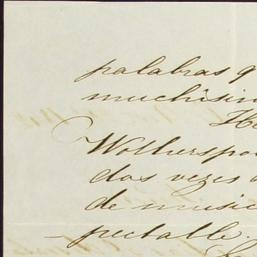 palabras q
muchisin
He
Wotherspoo
dos vezes
de music
pectable.